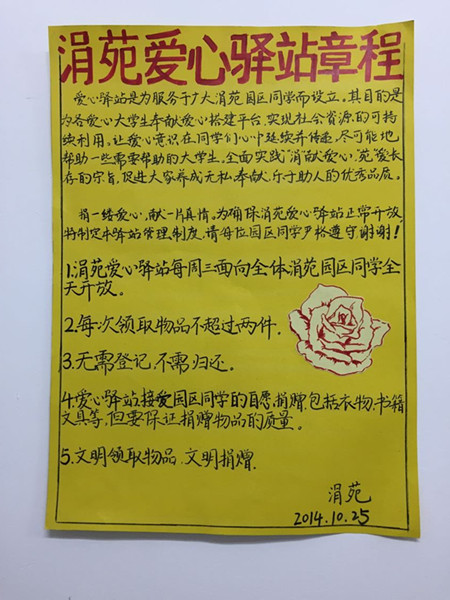 涓苑爱心驿站章程
爱心驿站是为服务于广大涓苑园区同学而设立。其目的是
为各爱心大学生奉献爱心搭建平台,实现社会资源的可持
续利用。让爱心意识在同学们心中延续并传递,尽可能地
帮助一些需要帮助的大学生,全面实践“涓献爱心,苑爱长
存的宗旨,促进大家养成无私奉献,乐于助人的优秀品质。
捐一络爱心,献一片真情。为确保涓苑爱心驿站正常开放,
特制定本驿站管理制度,请每位园区同学严格遵守谢谢!
1.涓苑爱心驿站每周三面向全体涓苑园区同学全
天开放。
2.每次领取物品不超过两件。
3.无需登记,不需归还。
4.爱心驿站接受园区同学的自愿捐赠,包括衣物,书籍
文具等,但要保证捐赠物品的质量。
5.文明领取物品,文明捐赠.
涓苑
2014.10.25